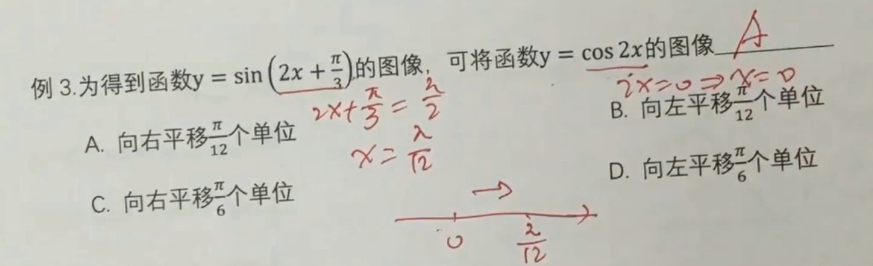 例 3.为得到函数y = sin(2x + π/3)的图像，可将函数y = cos 2x的图像 A
2x=0 ⇒ x=0
2x+π/3=π/2
A. 向右平移π/12个单位
B. 向左平移π/12个单位
x=π/12
C. 向右平移π/6个单位
D. 向左平移π/6个单位
→
0 π/12